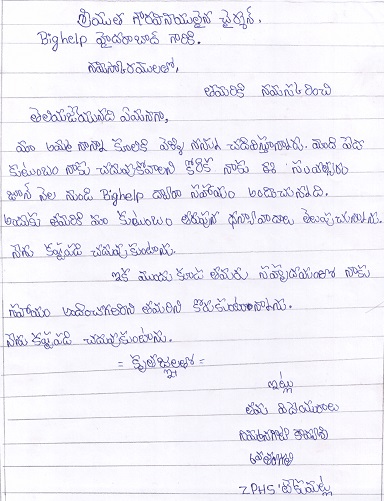 శ్రీయుత గౌరవనీయులైన చైర్మన్.
Bighelp హైదరాబాద్ గారికి.
నమస్కారములతో,
తమరికి నమస్కరించి
తెలియజేయునది ఏమనగా,
మా అమ్మ నాన్న కూలికి వెళ్ళి నన్ను చదివిస్తున్నారు. మాది పేద
కుటుంబం నాకు చదువుకోవాలని కోరిక నాకు ఈ సంవత్సరం
జూన్ నెల నుండి Bighelp ద్వారా సహాయం అందుచున్నది.
అందుకు తమరికి మా కుటుంబం తరుపున ధన్యవాదాలు తెలుపుచున్నాను.
నేను కష్టపడి చదువుకుంటాను.
ఇక ముందు కూడ తమరు సహృదయంతో నాకు
సహాయం అందించగలరని తమరిని కోరుకుంటున్నాను.
నేను కష్టపడి చదువుకుంటాను.
= కృతజ్ఞతలతో =
ఇట్లు
తమ విధేయురాలు
ZPHS